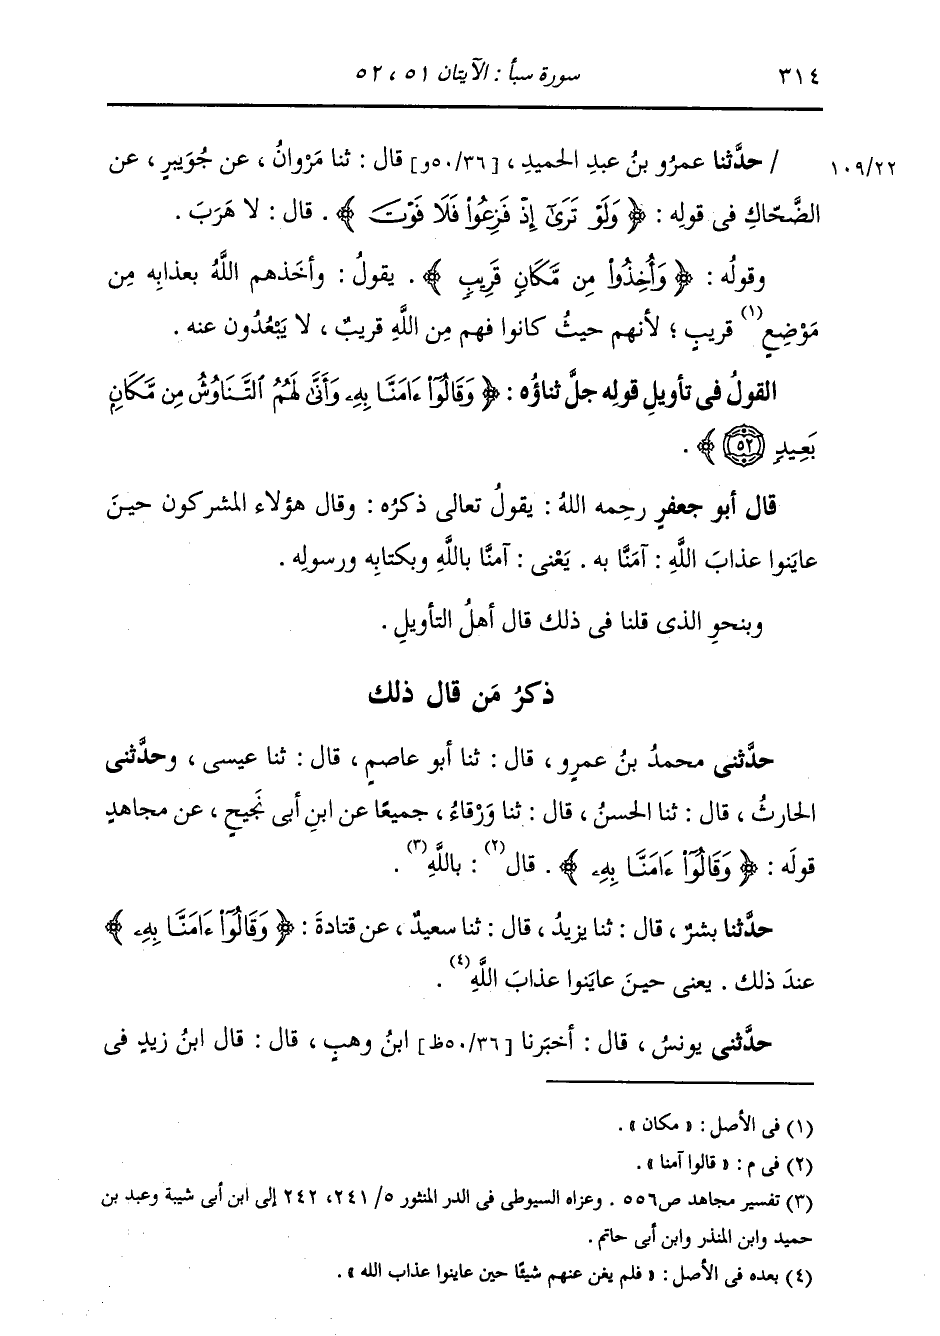 ٣١٤ سورة سبأ : الآيتان ٥١ ، ٥٢
١٠٩/٢٢ / حدَّثنا عمرُو بنُ عبدِ الحميدِ ، [٥٠/٣٦و] قال : ثنا مَرْوانُ ، عن جُوَيبرٍ ، عن
الضَّحّاكِ فى قولِه : ﴿ وَلَوْ تَرَىٰٓ إِذْ فَزِعُوا۟ فَلَا فَوْتَ ﴾ . قال : لا هَرَبَ .
وقولُه : ﴿ وَأُخِذُوا۟ مِن مَّكَانٍ قَرِيبٍ ﴾ . يقولُ : وأخَذهم اللَّهُ بعذابِه مِن
مَوْضِعٍ(١) قريبٍ ؛ لأنهم حيثُ كانوا فهم مِن اللَّهِ قريبٌ ، لا يَبْعُدُون عنه .
القولُ فى تأويلِ قولِه جلَّ ثناؤُه : ﴿ وَقَالُوٓا۟ ءَامَنَّا بِهِۦ وَأَنَّىٰ لَهُمُ ٱلتَّنَاوُشُ مِن مَّكَانٍ
بَعِيدٍ ٥٢ ﴾ .
قال أبو جعفرٍ رحِمه اللهُ : يقولُ تعالى ذكرُه : وقال هؤلاء المشركون حينَ
عايَنوا عذابَ اللَّهِ : آمَنَّا به . يَعْنى : آمنَّا باللَّهِ وبكتابِه ورسولِه .
وبنحوِ الذى قلنا فى ذلك قال أهلُ التأويلِ .
ذكرُ مَن قال ذلك
حدَّثنى محمدُ بنُ عمرٍو ، قال : ثنا أبو عاصمٍ ، قال : ثنا عيسى ، وحدَّثنى
الحارثُ ، قال : ثنا الحسنُ ، قال : ثنا وَرْقاءُ ، جميعًا عن ابنِ أبى نَجيحٍ ، عن مجاهدٍ
قولَه : ﴿ وَقَالُوٓا۟ ءَامَنَّا بِهِۦ ﴾ . قال(٢) : باللَّهِ(٣) .
حدَّثنا بشرٌ ، قال : ثنا يزيدُ ، قال : ثنا سعيدٌ ، عن قتادةَ : ﴿ وَقَالُوٓا۟ ءَامَنَّا بِهِۦ ﴾
عندَ ذلك . يعنى حينَ عايَنوا عذابَ اللَّهِ(٤) .
حدَّثنى يونسُ ، قال : أخبَرنا [٥٠/٣٦ظ] ابنُ وهبٍ ، قال : قال ابنُ زيدٍ فى
(١) فى الأصل : « مكان » .
(٢) فى م : « قالوا آمنا » .
(٣) تفسير مجاهد ص٥٥٦ . وعزاه السيوطى فى الدر المنثور ٥/ ٢٤١، ٢٤٢ إلى ابن أبى شيبة وعبد بن
حميد وابن المنذر وابن أبى حاتم .
(٤) بعده فى الأصل : « فلم يغن عنهم شيئًا حين عاينوا عذاب الله » .